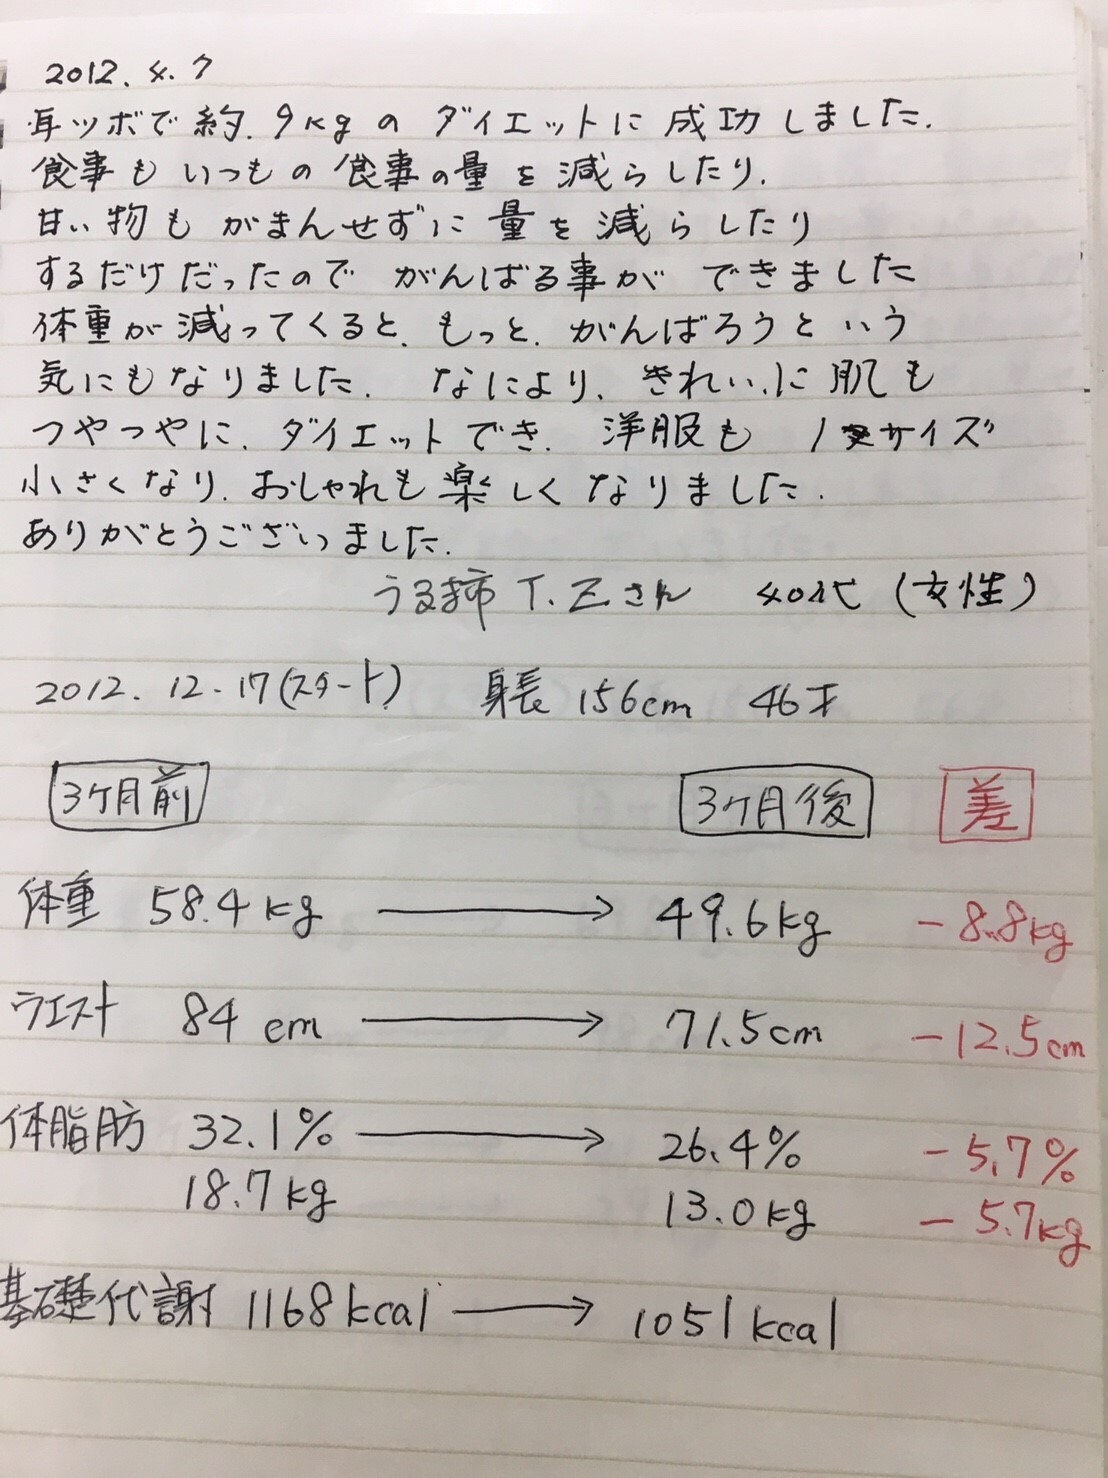 2012.4.7
耳ツボで約.9kgのダイエットに成功しました.
食事もいつもの食事の量を減らしたり.
甘い物もがまんせずに量を減らしたり
するだけだったのでがんばる事ができました
体重が減ってくると.もっと.がんばろうという
気にもなりました.なにより.きれいに肌も
つやつやに.ダイエットでき.洋服も1サイズ
小さくなり.おしゃれも楽しくなりました.
ありがとうございました.
うる柿 T.Zさん 40代(女性)
2012.12.17(スタート) 身長156cm 46才
3ケ月前 3ケ月後 差
体重 58.4kg → 49.6kg -8.8kg
ウエスト 84cm → 71.5cm -12.5cm
体脂肪 32.1% → 26.4% -5.7%
18.7kg 13.0kg -5.7kg
基礎代謝 1168kcal → 1051kcal